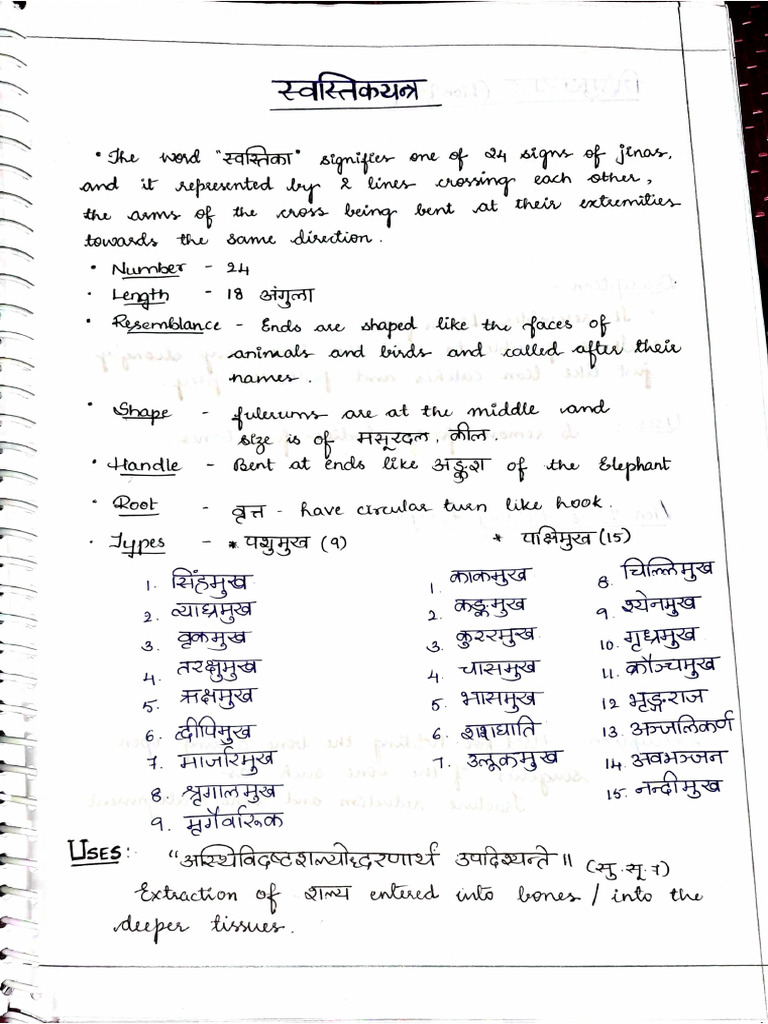 स्वस्तिकयन्त्र
• The word "स्वस्तिका" signifies one of 24 signs of jinas,
and it represented by 2 lines crossing each other,
the arms of the cross being bent at their extremities
towards the same direction.
• Number - 24
• Length - 18 अंगुला
• Resemblance - Ends are shaped like the faces of
animals and birds and called after their
names.
• Shape - fulcrums are at the middle and
size is of मसूरदल, कील.
• Handle - Bent at ends like अङ्कुश of the Elephant
• Root - वृत्त - have circular turn like hook.
• Types - * पशुमुख (9) * पाक्षिमुख (15)
1. सिंहमुख 1. काकमुख 8. चिल्लिमुख
2. व्याघ्रमुख 2. कङ्कमुख 9. श्येनमुख
3. वृकमुख 3. कुररमुख 10. गृध्रमुख
4. तरक्षुमुख 4. चासमुख 11. क्रौञ्चमुख
5. ऋक्षमुख 5. भासमुख 12 भृङ्गराज
6. द्वीपिमुख 6. शशघाति 13. अञ्जलिकर्ण
7. मार्जारमुख 7. उलूकमुख 14. अवभञ्जन
8. श्रृगालमुख 15. नन्दीमुख
9. मृगैर्वारूक
USES: "अस्थिविदष्टशल्योद्धरणार्थं उपदिश्यन्ते॥ (सु.सू.7)
Extraction of शल्य entered into bones / into the
deeper tissues.